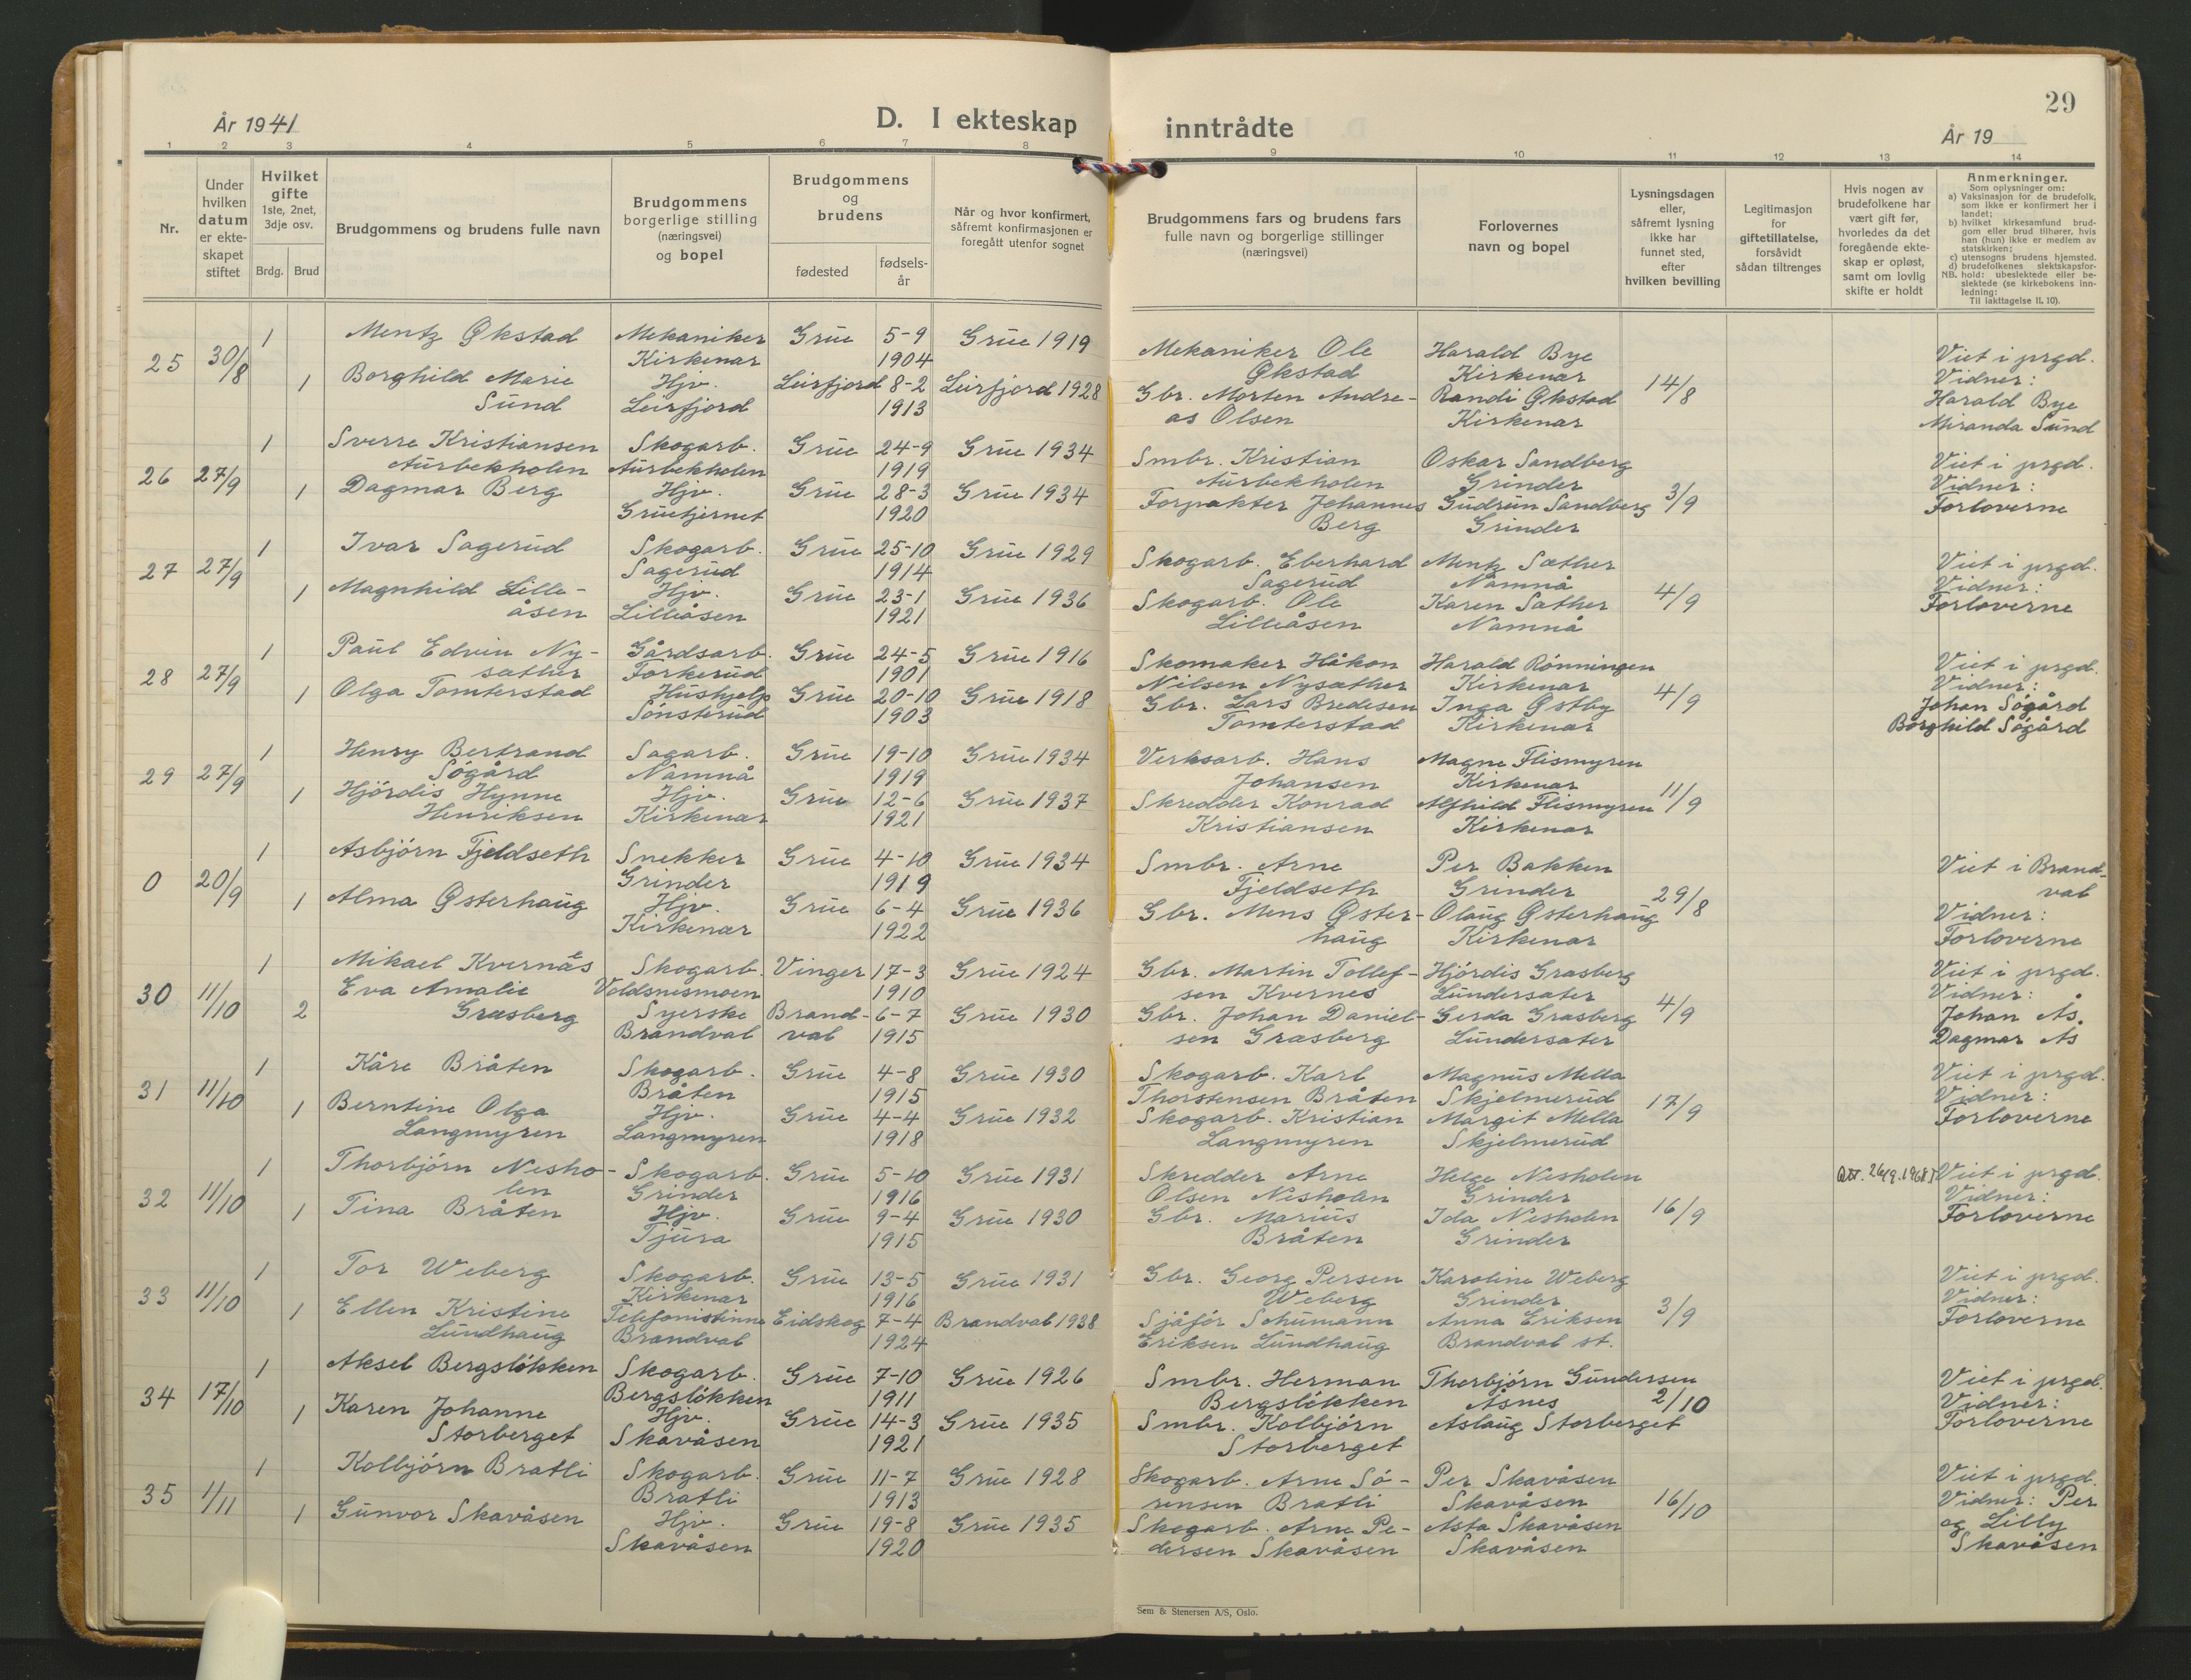 29
År 1941
D. I ekteskap inntrådte
År 19
1 2 3 4 5 6 7 8 9 10 11 12 13 14
Nr.
Under hvilken datum er ekteskapet stiftet
Hvilket gifte 1ste, 2net, 3dje osv.
Brdg. Brud
Brudgommens og brudens fulle navn
Brudgommens borgerlige stilling (næringsvei) og bopel
Brudgommens og brudens
fødested
fødselsår
Når og hvor konfirmert, såfremt konfirmasjonen er foregått utenfor sognet
Brudgommens fars og brudens fars fulle navn og borgerlige stillinger (næringsvei)
Forlovernes navn og bopel
Lysningsdagen eller, såfremt lysning ikke har funnet sted, efter hvilken bevilling
Legitimasjon for giftetillatelse, forsåvidt sådan tiltrenges
Hvis nogen av brudefolkene har vært gift før, hvorledes da det foregående ekteskap er opløst, samt om lovlig skifte er holdt
Anmerkninger.
Som oplysninger om:
a) Vaksinasjon for de brudefolk, som ikke er konfirmert her i landet;
b) hvilket kirkesamfund brudgom eller brud tilhører, hvis han (hun) ikke er medlem av statskirken;
c) utensogns brudens hjemsted.
d) brudefolkenes slektskapsforhold: ubeslektede eller beslektede (se kirkebokens innledning:
NB.
Til iakttagelse II. 10).
25 30/8 1 Mentz Økstad Mekaniker Kirkenær Grue 5-9 1904 Grue 1919 Mekaniker Ole Økstad Harald Bye Kirkenær 14/8 Viet i prgd.
1 Borghild Marie Sund Hjv. Leirfjord Leirfjord 8-2 1913 Leirfjord 1928 Gbr. Morten Andreas Olsen Randi Økstad Kirkenær Vidner: Harald Bye Miranda Sund
26 27/9 1 Sverre Kristiansen Aurbekholen Skogarb. Aurbekholen Grue 24-9 1919 Grue 1934 Smbr. Kristian Aurbekholen Oskar Sandberg Grinder 3/9 Viet i prgd.
1 Dagmar Berg Hjv. Gruetjernet Grue 28-3 1920 Grue 1934 Forpakter Johannes Berg Gudrun Sandberg Grinder Vidner: Forloverne
27 27/9 1 Ivar Sagerud Skogarb. Sagerud Grue 25-10 1914 Grue 1929 Skogarb. Eberhard Sagerud Mentz Sæther Namnå 4/9 Viet i prgd.
1 Magnhild Lilleåsen Hjv. Lilleåsen Grue 23-1 1921 Grue 1936 Skogarb. Ole Lilleåsen Karen Sæther Namnå Vidner: Forloverne
28 27/9 1 Paul Edvin Nysæther Gårdsarb. Forkerud Grue 24-5 1901 Grue 1916 Skomaker Håkon Nilsen Nysæther Harald Rønningen Kirkenær 4/9 Viet i prgd.
1 Olga Tomterstad Hushjelp Sønsterud Grue 20-10 1903 Grue 1918 Gbr. Lars Bredesen Tomterstad Inga Østby Kirkenær Vidner: Johan Søgård Borghild Søgård
29 27/9 1 Henry Bertrand Søgård Sagarb. Namnå Grue 19-10 1919 Grue 1934 Verksarb. Hans Johansen Magne Flismyren Kirkenær 11/9
1 Hjørdis Hynne Henriksen Hjv. Kirkenær Grue 12-6 1921 Grue 1937 Skredder Konrad Kristiansen Alfhild Flismyren Kirkenær
0 20/9 1 Asbjørn Fjeldseth Snekker Grinder Grue 4-10 1919 Grue 1934 Smbr. Arne Fjeldseth Per Bakken Grinder 29/8 Viet i Brandval
1 Alma Østerhaug Hjv. Kirkenær Grue 6-4 1922 Grue 1936 Gbr. Mens Østerhaug Olaug Østerhaug Kirkenær Vidner: Forloverne
30 11/10 1 Mikael Kvernæs Skogarb. Voldsnesmoen Vinger 17-3 1910 Grue 1924 Gbr. Martin Tollefsen Kvernes Hjørdis Grasberg Lundersæter 4/9 Viet i prgd.
2 Eva Amalie Grasberg Syerske Brandval Brandval 6-7 1915 Grue 1930 Gbr. Johan Danielsen Grasberg Gerda Grasberg Lundersæter Vidner: Johan Ås. Dagmar Ås
31 11/10 1 Kåre Bråten Skogarb. Bråten Grue 4-8 1915 Grue 1930 Skogarb. Karl Thorstensen Bråten Magnus Mella Skjelmerud 17/9 Viet i prgd.
1 Berntine Olga Langmyren Hjv. Langmyren Grue 4-4 1918 Grue 1932 Skogarb. Kristian Langmyren Margit Mella Skjelmerud Vidner: Forloverne
32 11/10 1 Thorbjørn Nesholen Skogarb. Grinder Grue 5-10 1916 Grue 1931 Skredder Arne Olsen Nesholen Helge Nesholen Grinder 16/9 Viet i prgd.
1 Tina Bråten Hjv. Tjura Grue 9-4 1915 Grue 1930 Gbr. Marius Bråten Ida Nesholen Grinder Vidner: Forloverne
33 11/10 1 Tor Weberg Skogarb. Kirkenær Grue 13-5 1916 Grue 1931 Gbr. Georg Persen Weberg Karoline Weberg Grinder 3/9 Viet i prgd.
1 Ellen Kristine Lundhaug Telefonistinne Brandval Eidskog 7-4 1924 Brandval 1938 Sjåfør Schumann Eriksen Lundhaug Anna Eriksen Brandval st. Vidner: Forloverne
34 17/10 1 Aksel Bergsløkken Skogarb. Bergsløkken Grue 7-10 1911 Grue 1926 Smbr. Herman Bergsløkken Thorbjørn Gundersen Åsnes 2/10 Viet i prgd.
1 Karen Johanne Storberget Hjv. Skavåsen Grue 14-3 1921 Grue 1935 Smbr. Kolbjørn Storberget Aslaug Storberget Vidner: Forloverne
35 1/11 1 Kolbjørn Bratli Skogarb. Bratli Grue 11-7 1913 Grue 1928 Skogarb. Arne Sørensen Bratli Per Skavåsen Skavåsen 16/10 Viet i prgd.
1 Gunvor Skavåsen Hjv. Skavåsen Grue 19-8 1920 Grue 1935 Skogarb. Arne Pedersen Skavåsen Asta Skavåsen Skavåsen Vidner: Per og Lilly Skavåsen
Sem & Stenersen A/S, Oslo.